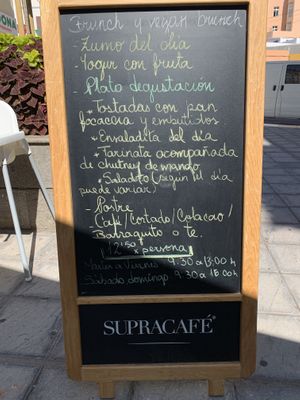 Brunch y vegan brunch
- Zumo del dia
- Yogur con fruta
- Plato degustación
* Tostadas con pan
focacoia y embutidos
* Ensaladita del día
* Tarinata acompañada
de chutney de mando
* Saladito (según el día
puede variar)
- Postre
- Café/Cortado/Colacao/
Barraquito o te.
12'50 x persona
Martes a Viernes 9:30 a 13:00 h
Sábado domingo 9:30 a 18:00 h
SUPRACAFÉ